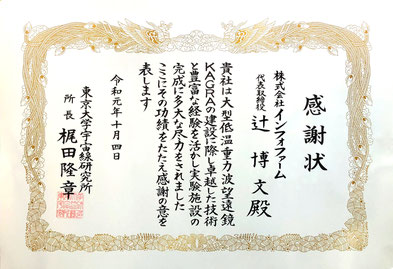 感謝状
株式会社インフォファーム
代表取締役
辻 博文殿
貴社は大型低温重力波望遠鏡
KAGRAの建設に際し卓越した技術
と豊富な経験を活かし実験施設の
完成に多大な尽力をされました
ここにその功績をたたえ感謝の意を
表します
令和元年十月四日
東京大学宇宙線研究所
所長 梶田隆章